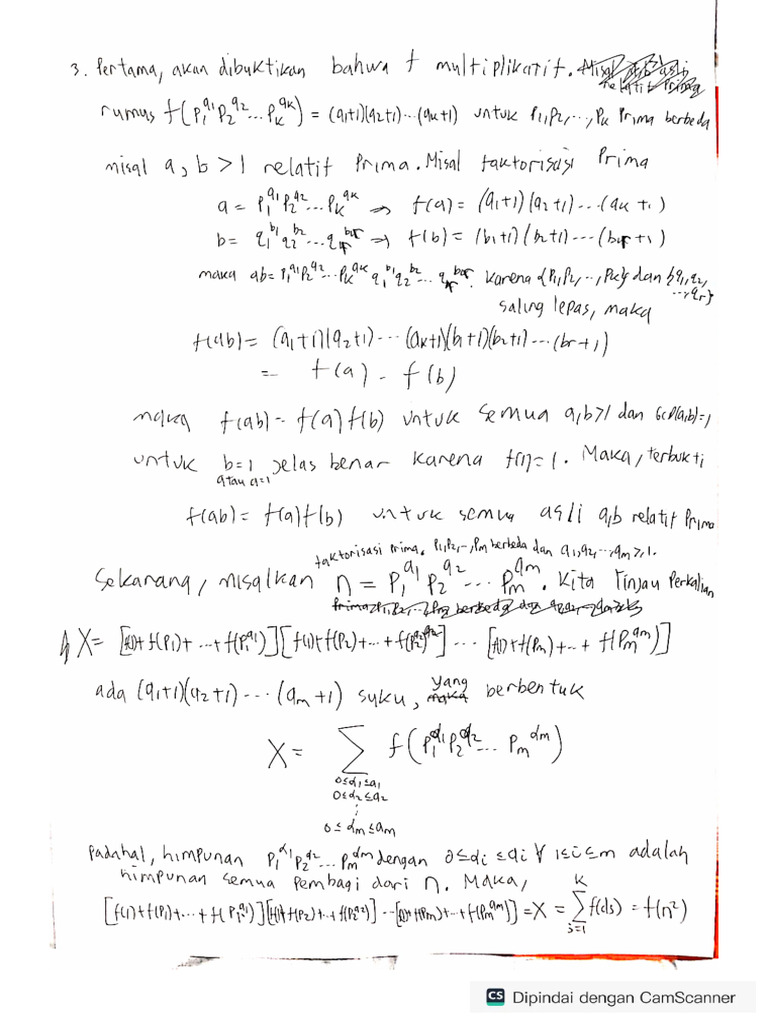 3. Pertama, akan dibuktikan bahwa f multiplikatif.
rumus f(p₁^a₁ p₂^a₂ ... pₖ^aₖ) = (a₁+1)(a₂+1)...(aₖ+1) untuk p₁,p₂,...,pₖ prima berbeda
misal a,b > 1 relatif prima. Misal faktorisasi prima
a = p₁^a₁ p₂^a₂ ... pₖ^aₖ ⇒ f(a) = (a₁+1)(a₂+1)...(aₖ+1)
b = q₁^b₁ q₂^b₂ ... qᵣ^bᵣ ⇒ f(b) = (b₁+1)(b₂+1)...(bᵣ+1)
maka ab = p₁^a₁ p₂^a₂ ... pₖ^aₖ q₁^b₁ q₂^b₂ ... qᵣ^bᵣ. karena {p₁,p₂,..,pₖ} dan {q₁,q₂,
..,qᵣ}
saling lepas, maka
f(ab) = (a₁+1)(a₂+1)...(aₖ+1)(b₁+1)(b₂+1)...(bᵣ+1)
= f(a) - f(b)
maka f(ab) = f(a)f(b) untuk semua a,b>1 dan GCD(a,b)=1
untuk b=1 jelas benar karena f(1)=1. Maka, terbukti
atau a=1
f(ab) = f(a)f(b) untuk semua asli a,b relatif prima
faktorisasi prima. p₁,p₂,..,pₘ berbeda dan a₁,a₂,...,aₘ ≥ 1.
Sekarang, misalkan n = p₁^a₁ p₂^a₂ ... pₘ^aₘ. Kita tinjau perkalian
X = [f(1)+f(p₁)+...+f(p₁^a₁)][f(1)+f(p₂)+...+f(p₂^a₂)] ... [f(1)+f(pₘ)+..+ f(pₘ^aₘ)]
ada (a₁+1)(a₂+1)...(aₘ+1) suku, yang berbentuk
X = ∑ f(p₁^α₁ p₂^α₂ ... pₘ^αₘ)
0≤α₁≤a₁
0≤α₂≤a₂
⋮
0≤αₘ≤aₘ
Padahal, himpunan p₁^α₁ p₂^α₂ ... pₘ^αₘ dengan 0≤αᵢ≤aᵢ ∀ 1≤i≤m adalah
himpunan semua pembagi dari n. Maka,
[f(1)+f(p₁)+...+f(p₁^a₁)][f(1)+f(p₂)+..+f(p₂^a₂)]...[f(1)+f(pₘ)+..+f(pₘ^aₘ)] = X = ∑_{j=1}^{k} f(dⱼ) = f(n²)
CS Dipindai dengan CamScanner